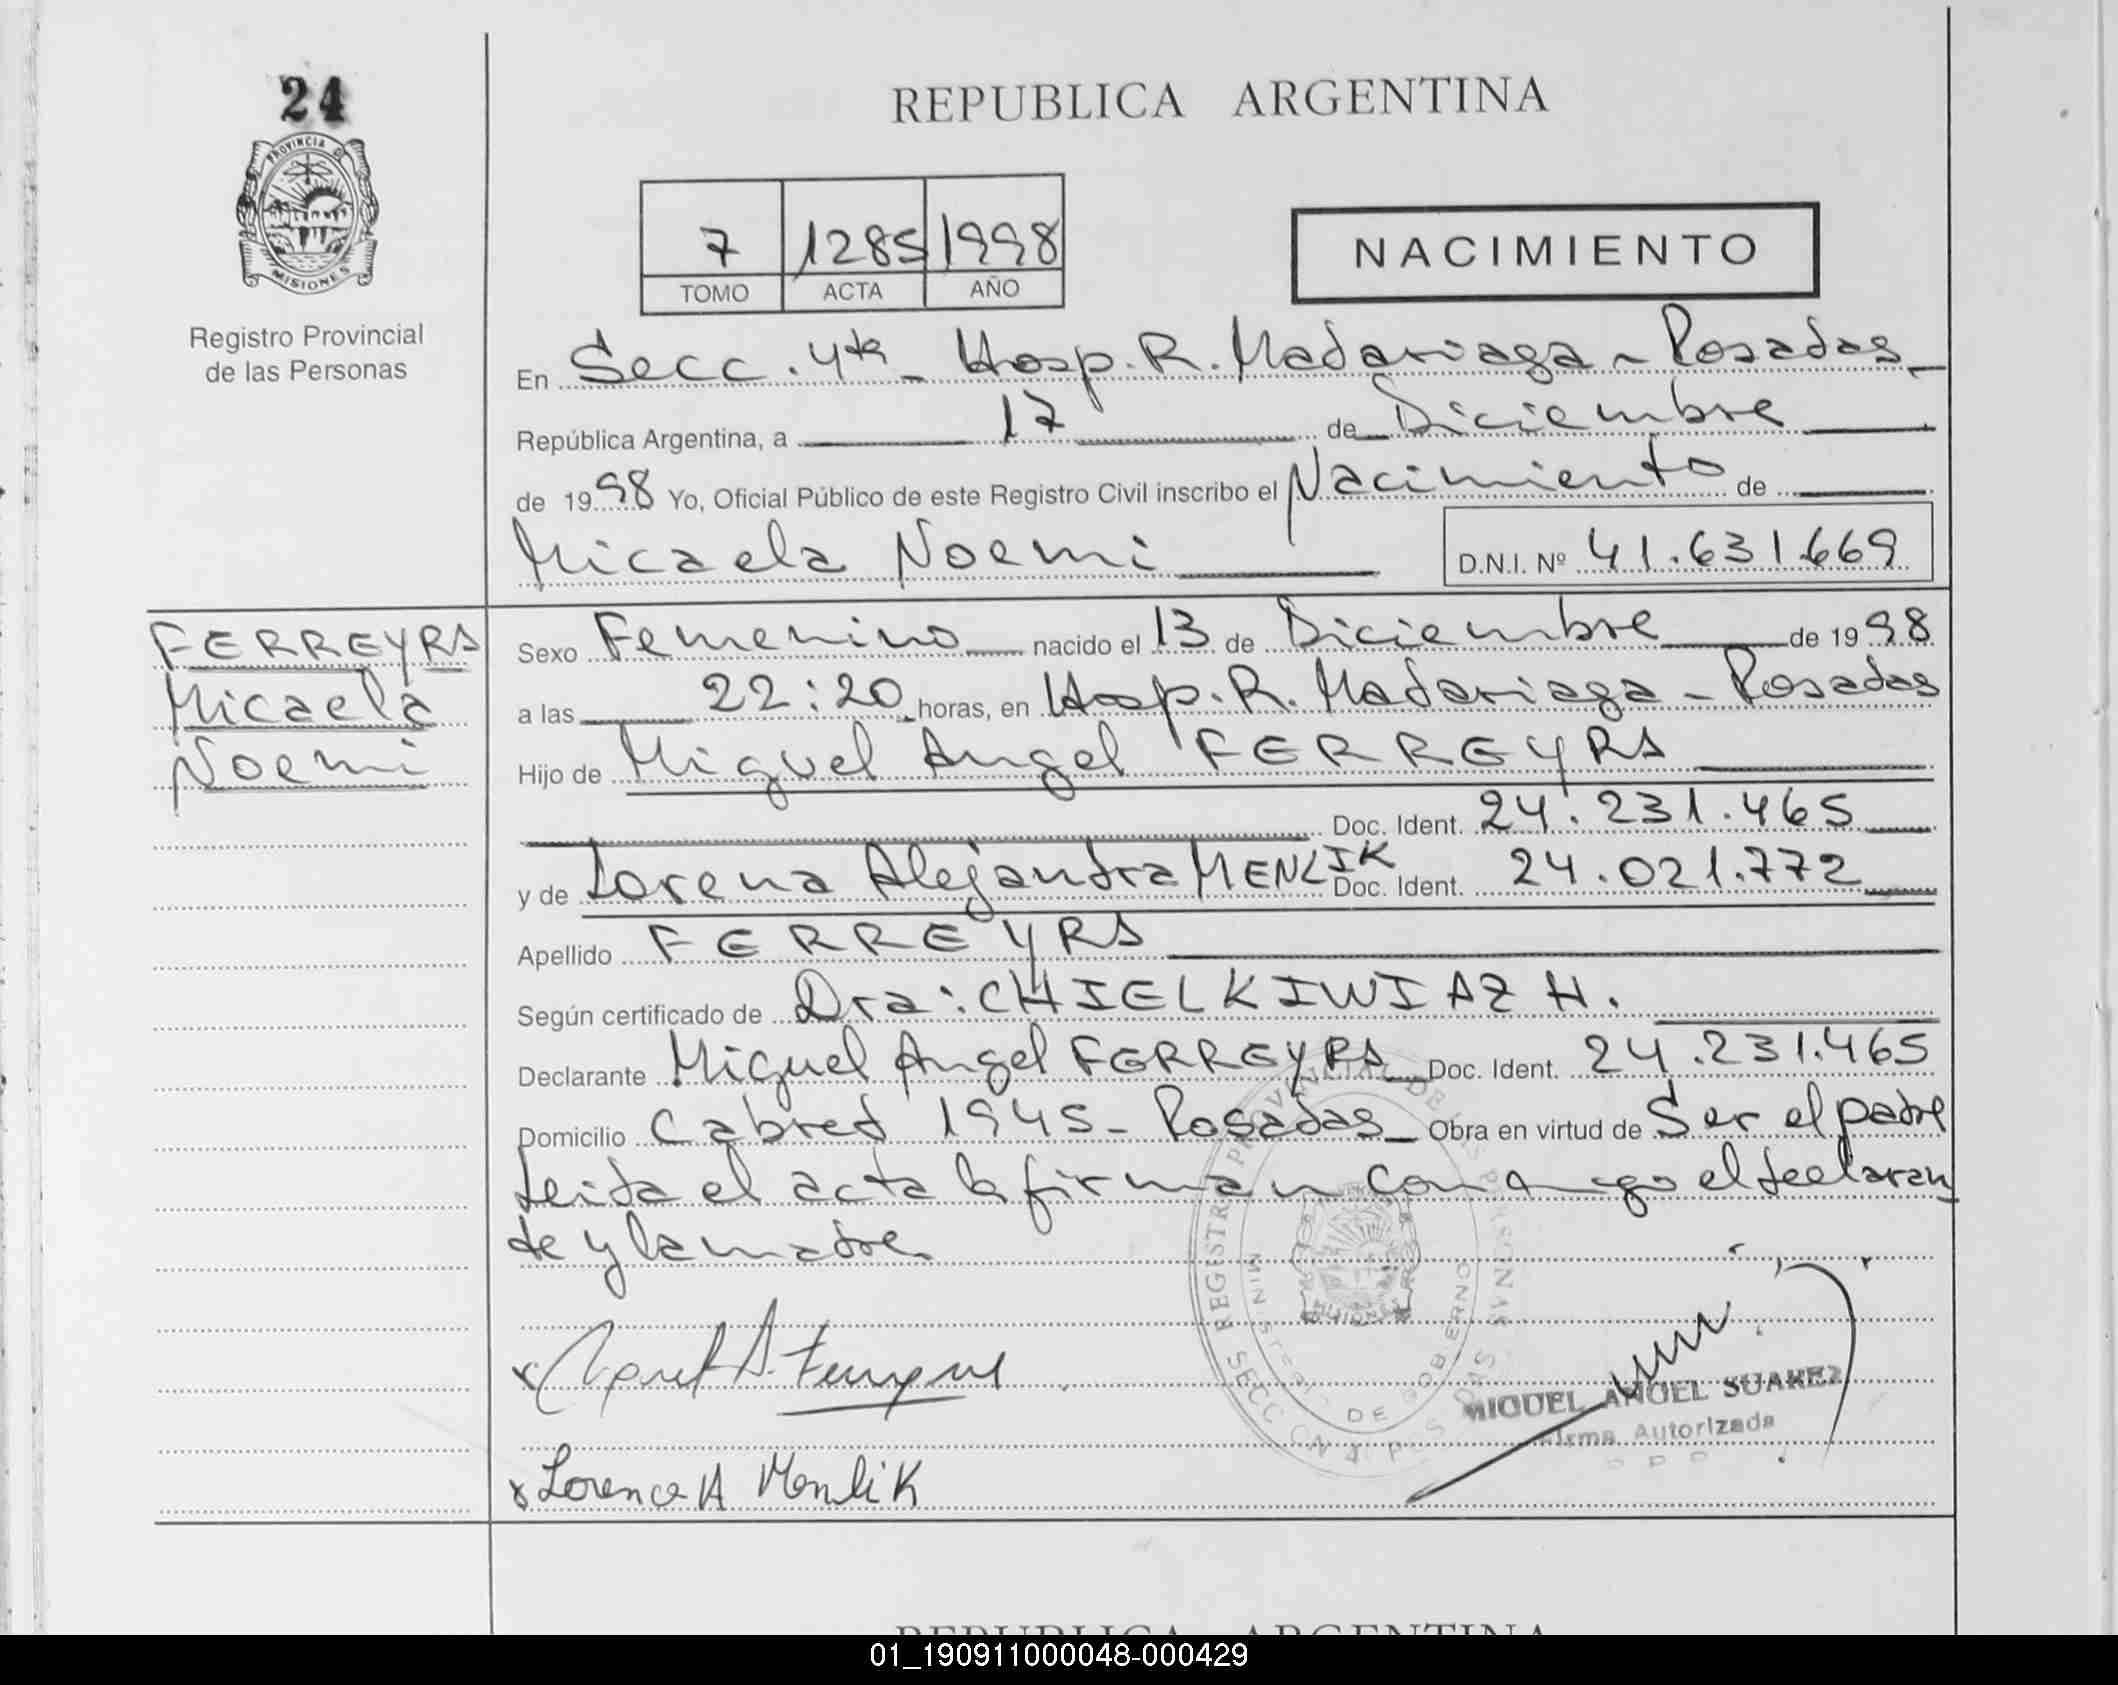 24
PROVINCIA DE
MISIONES
Registro Provincial
de las Personas
REPUBLICA ARGENTINA
7 1285 1998
TOMO ACTA AÑO
NACIMIENTO
En Secc. 4ta - Hosp. R. Madariaga - Posadas -
República Argentina, a 17 de Diciembre
de 1998 Yo, Oficial Público de este Registro Civil inscribo el Nacimiento de
Micaela Noemi D.N.I. Nº 41.631.669
FERREYRA
Micaela
Noemi
Sexo Femenino nacido el 13 de Diciembre de 1998
a las 22:20 horas, en Hosp. R. Madariaga - Posadas
Hijo de Miguel Angel FERREYRA
Doc. Ident. 24.231.465
y de Lorena Alejandra MENLIK Doc. Ident. 24.021.772
Apellido FERREYRA
Según certificado de Dra: CHIELKIWIAZ H.
Declarante Miguel Angel FERREYRA Doc. Ident. 24.231.465
Domicilio Cabred 1945 - Posadas - Obra en virtud de Ser el padre
Leida el acta la firman conmigo el declaran
te y la madre
REGISTRO PROVINCIAL DE LAS PERSONAS
MINISTERIO DE GOBIERNO
SECCION 4 POSADAS
MISIONES
Miguel A. Ferreyra
MIGUEL ANGEL SUAREZ
Firma Autorizada
Lorena A Menlik
REPUBLICA ARGENTINA
01_190911000048-000429